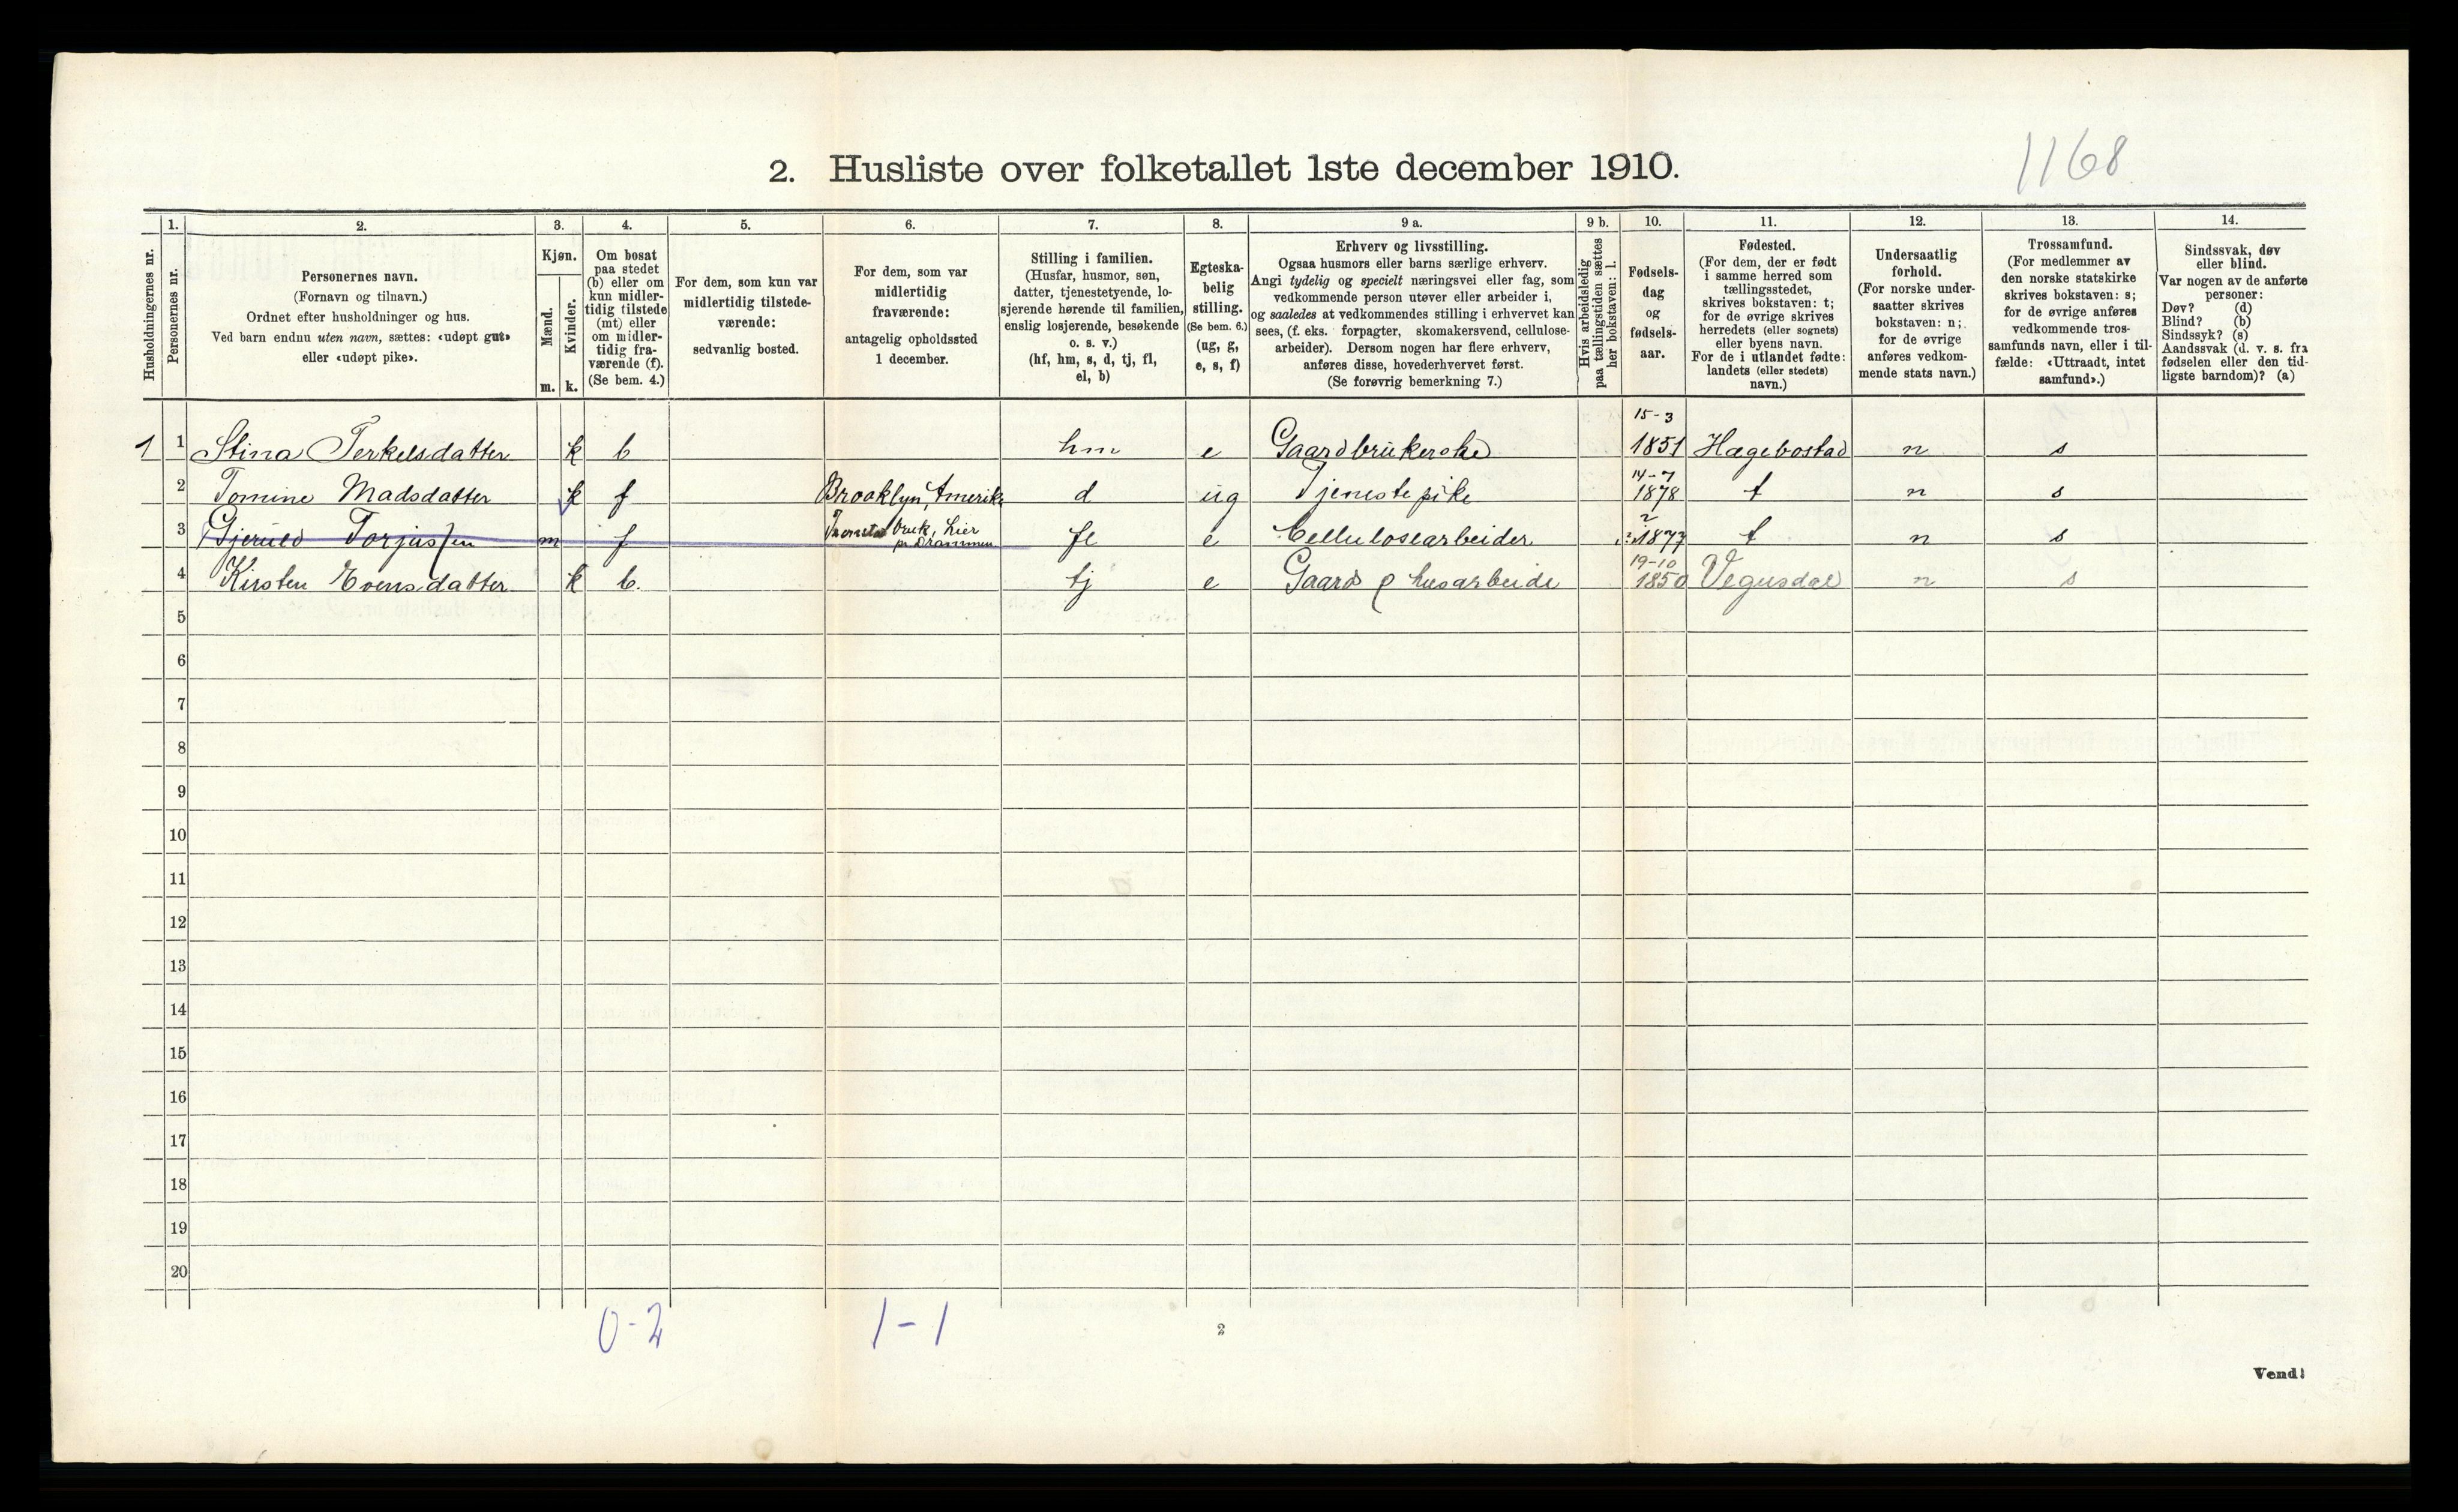 1168
2. Husliste over folketallet 1ste december 1910.
Husholdningernes nr.
1.
Personernes nr.
2.
Personernes navn.
(Fornavn og tilnavn.)
Ordnet efter husholdninger og hus.
Ved barn endnu uten navn, sættes: «udøpt gut»
eller «udøpt pike».
3.
Kjøn.
Mænd.
Kvinder.
m. k.
4.
Om bosat
paa stedet
(b) eller om
kun midler-
tidig tilstede
(mt) eller
om midler-
tidig fra-
værende (f).
(Se bem. 4.)
5.
For dem, som kun var
midlertidig tilstede-
værende:
sedvanlig bosted.
6.
For dem, som var
midlertidig
fraværende:
antagelig opholdssted
1 december.
7.
Stilling i familien.
(Husfar, husmor, søn,
datter, tjenestetyende, lo-
sjerende hørende til familien,
enslig losjerende, besøkende
o. s. v.)
(hf, hm, s, d, tj, fl,
el, b)
8.
Egteska-
belig
stilling.
(Se bem. 6.)
(ug, g,
e, s, f)
9 a.
Erhverv og livsstilling.
Ogsaa husmors eller barns særlige erhverv.
Angi tydelig og specielt næringsvei eller fag, som
vedkommende person utøver eller arbeider i,
og saaledes at vedkommendes stilling i erhvervet kan
sees, (f. eks. forpagter, skomakersvend, cellulose-
arbeider). Dersom nogen har flere erhverv,
anføres disse, hovederhvervet først.
(Se forøvrig bemerkning 7.)
9 b.
Hvis arbeidsledig
paa tællingstiden sættes
her bokstaven: l.
10.
Fødsels-
dag
og
fødsels-
aar.
11.
Fødested.
(For dem, der er født
i samme herred som
tællingsstedet,
skrives bokstaven: t;
for de øvrige skrives
herredets (eller sognets)
eller byens navn.
For de i utlandet fødte:
landets (eller stedets)
navn.)
12.
Undersaatlig
forhold.
(For norske under-
saatter skrives
bokstaven: n;
for de øvrige
anføres vedkom-
mende stats navn.)
13.
Trossamfund.
(For medlemmer av
den norske statskirke
skrives bokstaven: s;
for de øvrige anføres
vedkommende tros-
samfunds navn, eller i til-
fælde: «Uttraadt, intet
samfund».)
14.
Sindssvak, døv
eller blind.
Var nogen av de anførte
personer:
Døv? (d)
Blind? (b)
Sindssyk? (s)
Aandssvak (d. v. s. fra
fødselen eller den tid-
ligste barndom)? (a)
1 1 Stina Terkelsdatter k b hm e Gaardbrukerske 15-3 1851 Hægebostad n s
2 Tomine Madsdatter k f Brooklyn, Amerika d ug Tjenestepike 14-7 1878 t n s
3 Torjussen m f Bruk, Lier pr Drammen fl e Cellulosearbeider 1877 t n s
4 Kirsten Evensdatter k b. tj e Gaards & husarbeide 19-10 1850 Vegusdal n s
5
6
7
8
9
10
11
12
13
14
15
16
17
18
19
20
0-2 1-1
2
Vend!